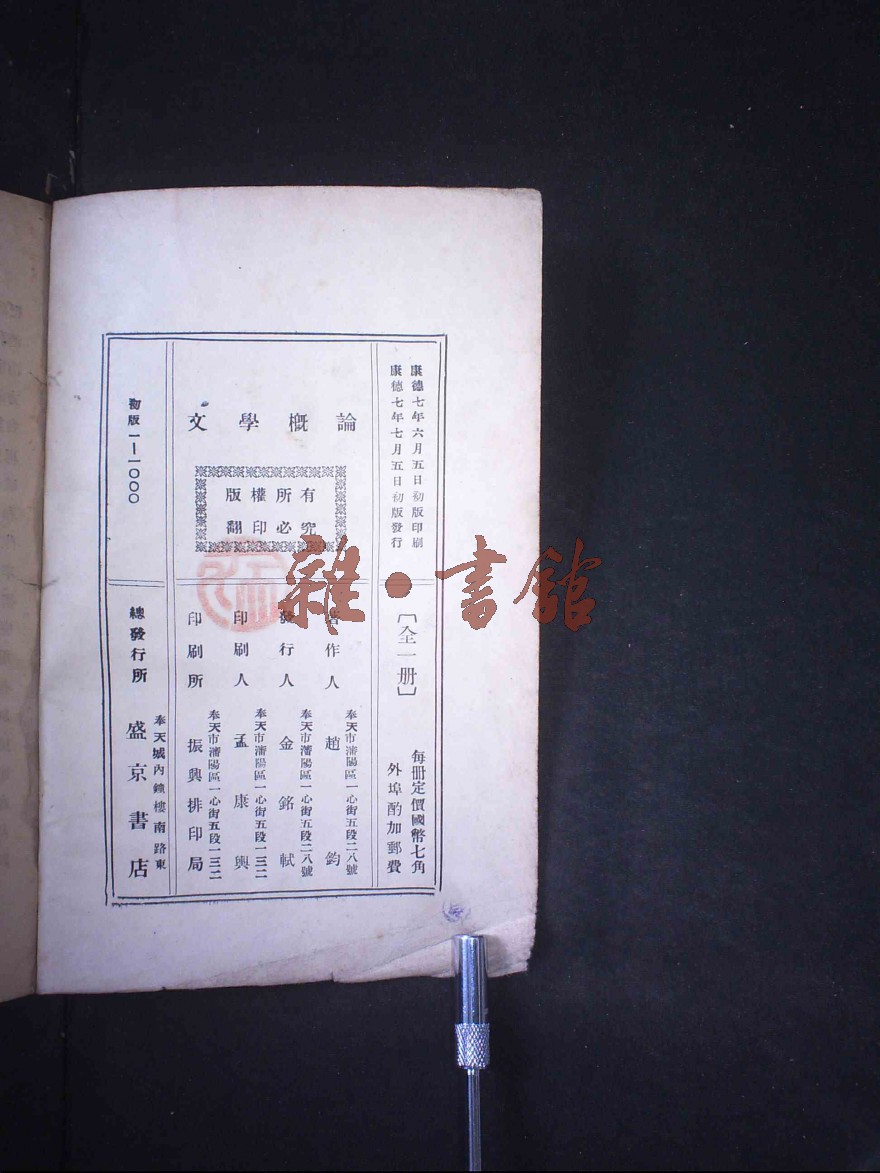 康德七年六月五日初版印刷
康德七年七月五日初版發行
[全一册]
每册定價國幣七角
外埠酌加郵費
文學槪論
版權所有
翻印必究
著作人
奉天市瀋陽區一心街五段二八號
趙鈞
發行人
奉天市瀋陽區一心街五段二八號
金銘軾
印刷人
奉天市瀋陽區一心街五段一三二
孟康興
印刷所
奉天市瀋陽區一心街五段一三二
振興排印局
初版一—一〇〇〇
總發行所
奉天城內鐘樓南路東
盛京書店
雜·書館